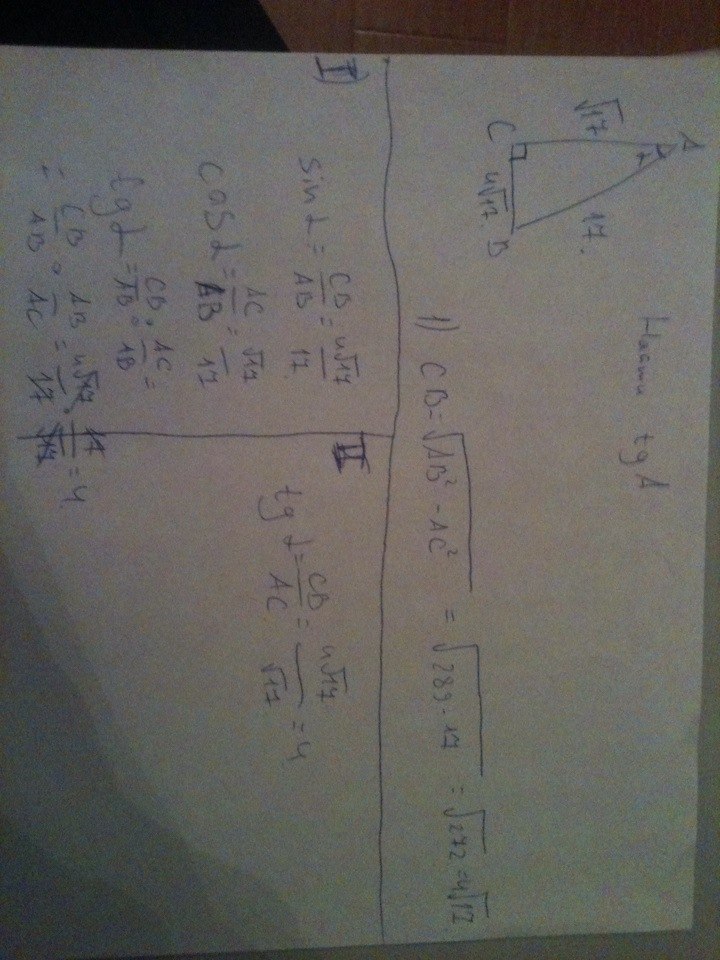 A
√17
17.
α
C
4√17.
B
Найти tg A
1) CB = √AB² - AC² = √289 - 17 = √272 = 4√17
I)
sin α = CB/AB = 4√17/17.
cos α = AC/AB = √17/17
tg α = CB/AB : AC/AB =
= CB/AB · AB/AC = 4√17/17 · 17/√17 = 4.
II
tg α = CB/AC = 4√17/√17 = 4